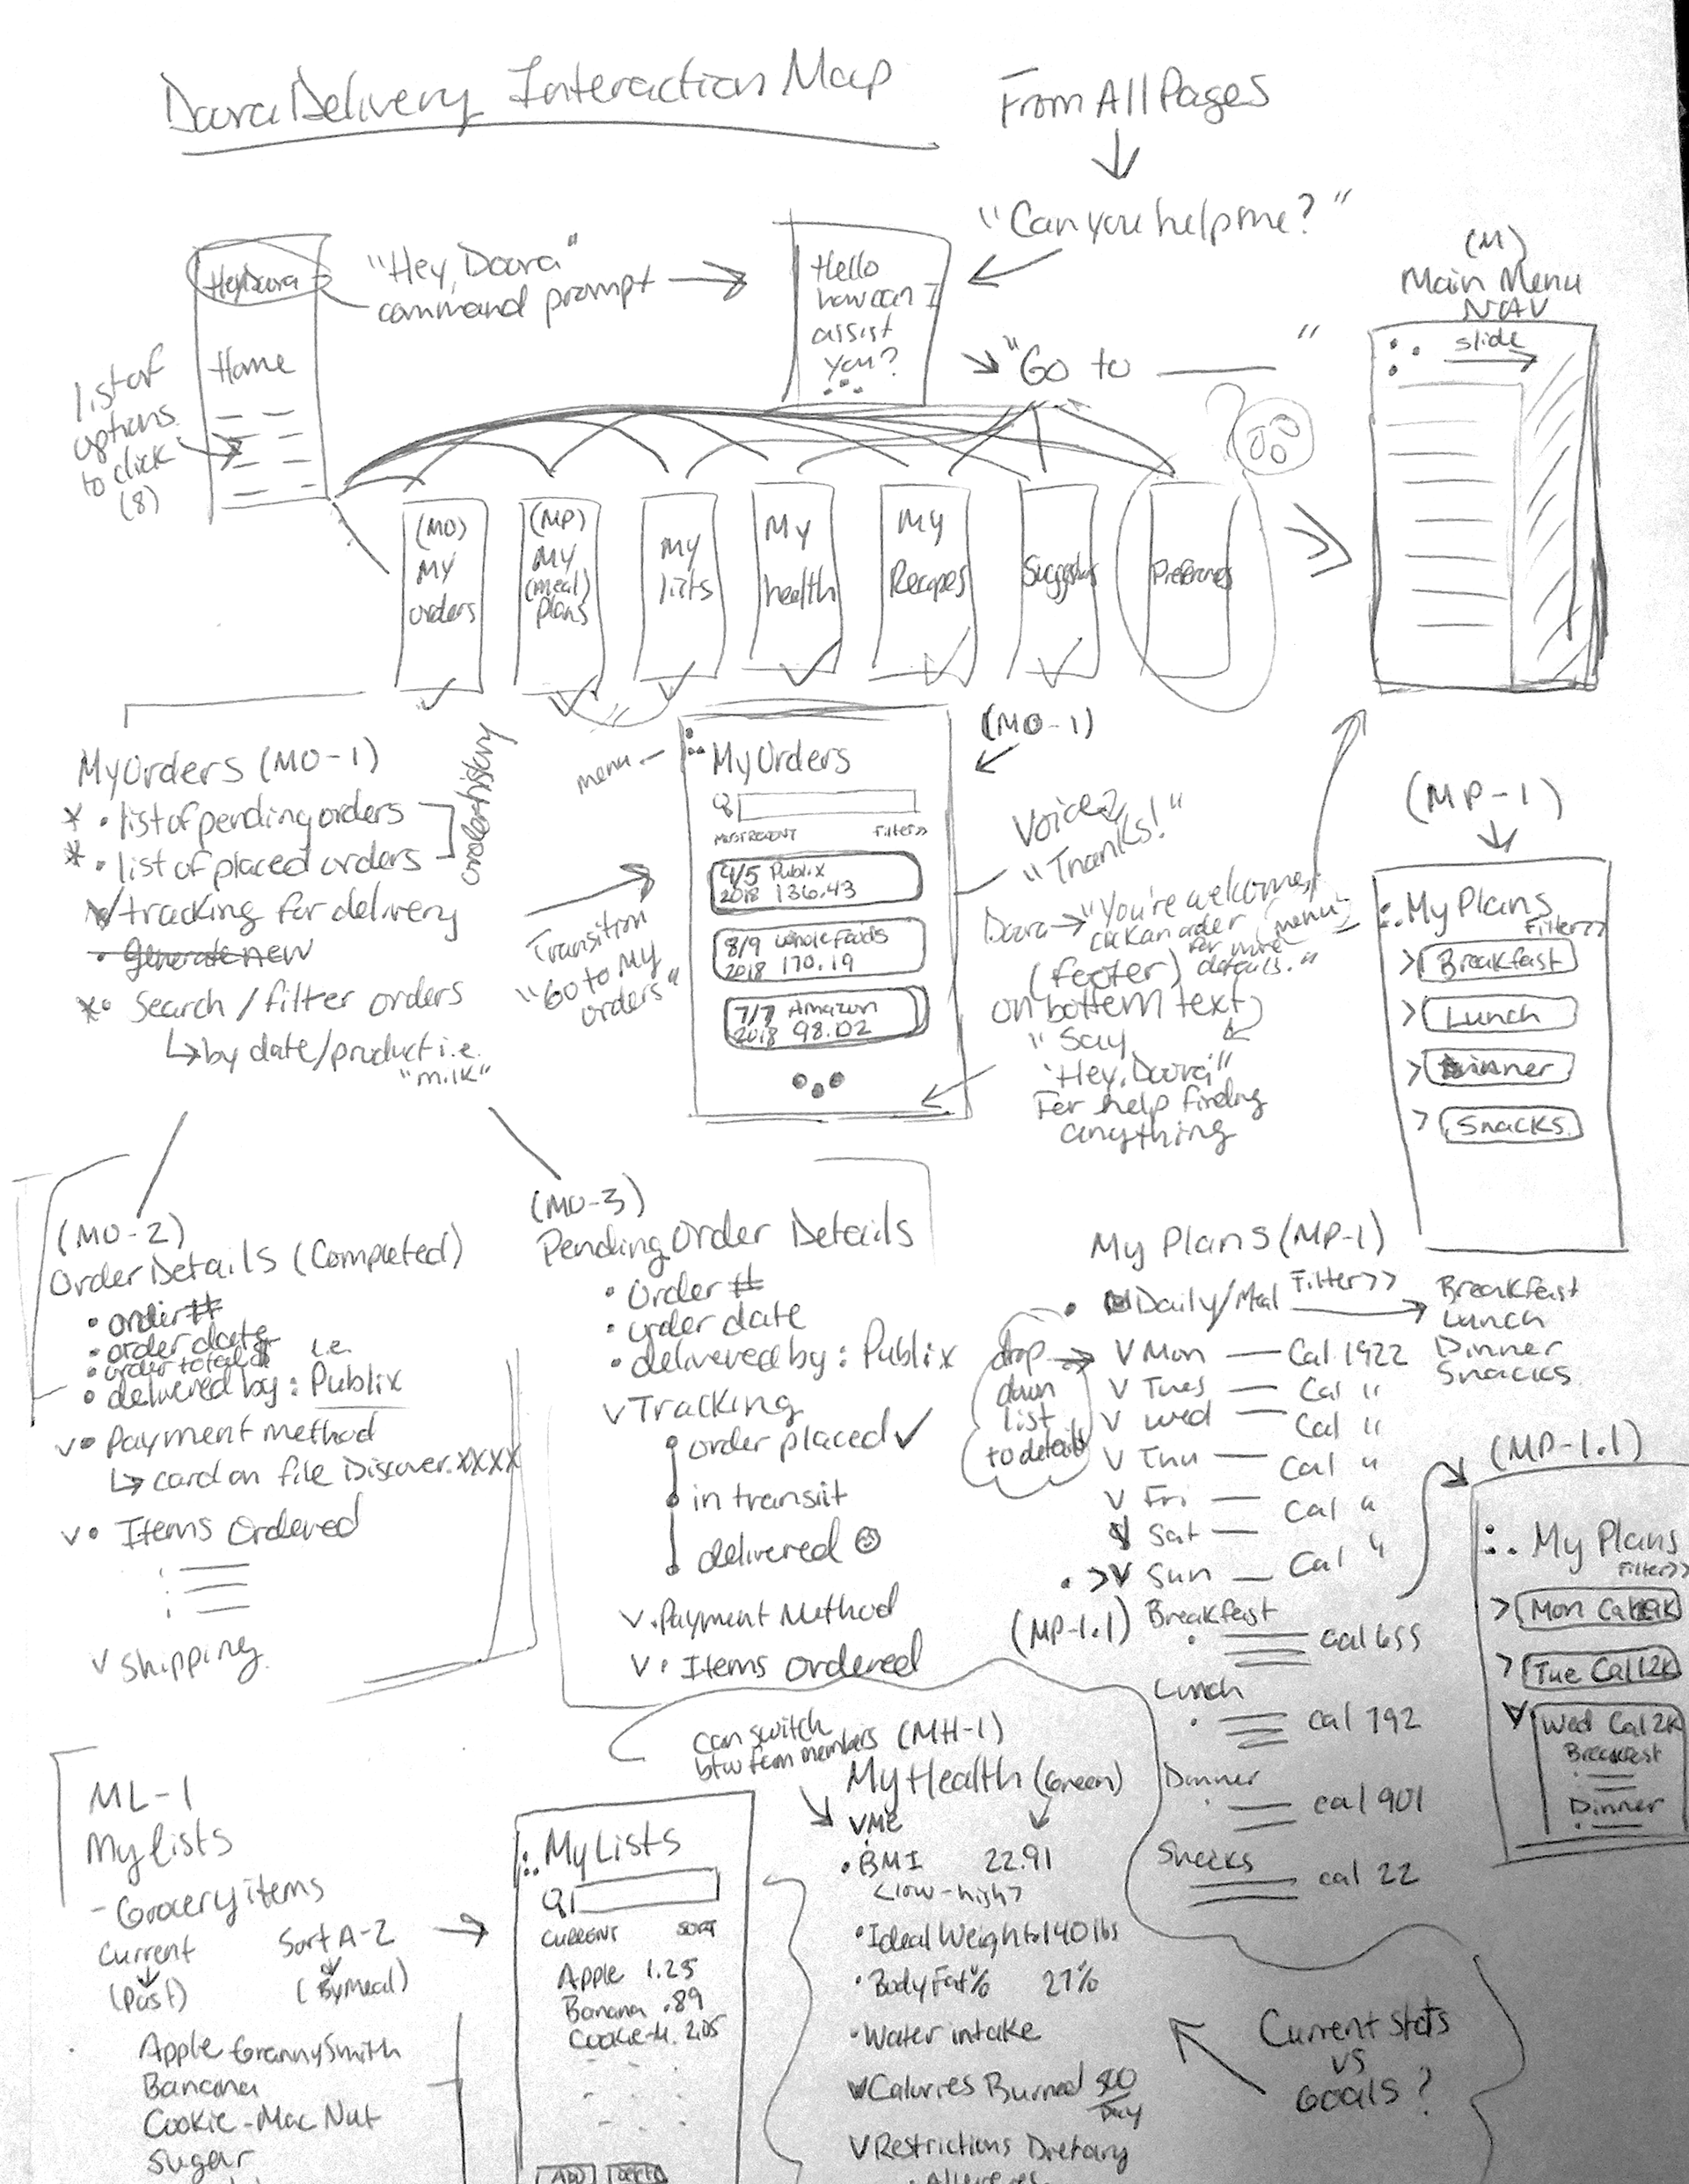 Doora Delivery Interaction Map
From All Pages
"Can you help me?"
Hey Doora
"Hey, Doora"
command prompt
Hello
how can I
assist
you?
"Go to ______"
(M)
Main Menu
NAV
slide
Home
list of
options
to click
(8)
(MO)
My
orders
(MP)
My
(meal)
plans
My
lists
My
health
My
Recipes
Suggestions
Preferences
My Orders (MO-1)
* • list of pending orders
* • list of placed orders
order history
tracking for delivery
• Generate new
* • Search / filter orders
↳ by date/product i.e.
"milk"
Transition
"Go to My
orders"
menu
(MO-1)
My Orders
MOST RECENT Filter>>
4/5 Publix
2018 136.43
8/9 Whole Foods
2018 170.19
7/7 Amazon
2018 98.02
Voice
"Thanks!"
Doora → "You're welcome,
click an order
for more
details."
(menu)
(footer)
on bottom text
"Say
'Hey, Doora'"
For help finding
anything
(MP-1)
My Plans
Filter>>
> Breakfast
> Lunch
> Dinner
> Snacks
(MO-2)
Order Details (Completed)
• order #
• order date
• order total $
i.e.
• delivered by: Publix
v • Payment method
↳ card on file Discover.XXXX
v • Items Ordered
v Shipping
(MO-3)
Pending Order Details
• Order #
• order date
• delivered by: Publix
v Tracking
order placed ✓
in transit
delivered ☺
v • Payment Method
v • Items Ordered
My Plans (MP-1)
• Daily/Meal Filter>>
Breakfast
Lunch
Dinner
Snacks
drop
down
list
to details
v Mon — Cal 1922
v Tues — Cal "
v Wed — Cal "
v Thu — Cal "
v Fri — Cal "
v Sat —
• >v Sun — Cal "
(MP-1.1) Breakfast
cal 655
Lunch
cal 792
Dinner
cal 901
Snacks
cal 22
(MP-1.1)
My Plans
Filter>>
> Mon
> Tue Cal 1.2K
v Wed Cal 2K
Breakfast
Dinner
ML-1
My lists
- Grocery items
Current Sort A-Z
(Past) (By Meal)
Apple Granny Smith
Banana
Cookie - Mac Nut
Sugar
My Lists
CURRENT SORT
Apple 1.25
Banana .89
Cookie-M. 2.05
ADD
can switch
btw fam members
(MH-1)
My Health (Green)
v Me
• BMI 22.91
<low-high>
• Ideal Weight 140 lbs
• Body Fat % 27%
• Water intake
v Calories Burned 500
Day
v Restrictions Dietary
• Allergies
Current stats
vs
GOALS?